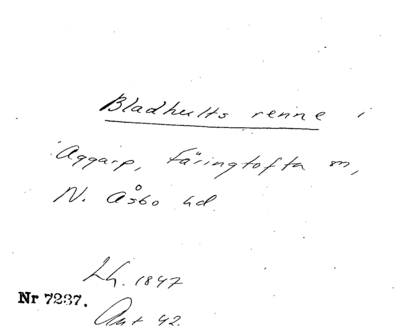 Bladhults renne i
Aggarp, Färingtofta sn,
N. Åsbo hd.
Lh. 1847
Nr 7237.
Ant 42.